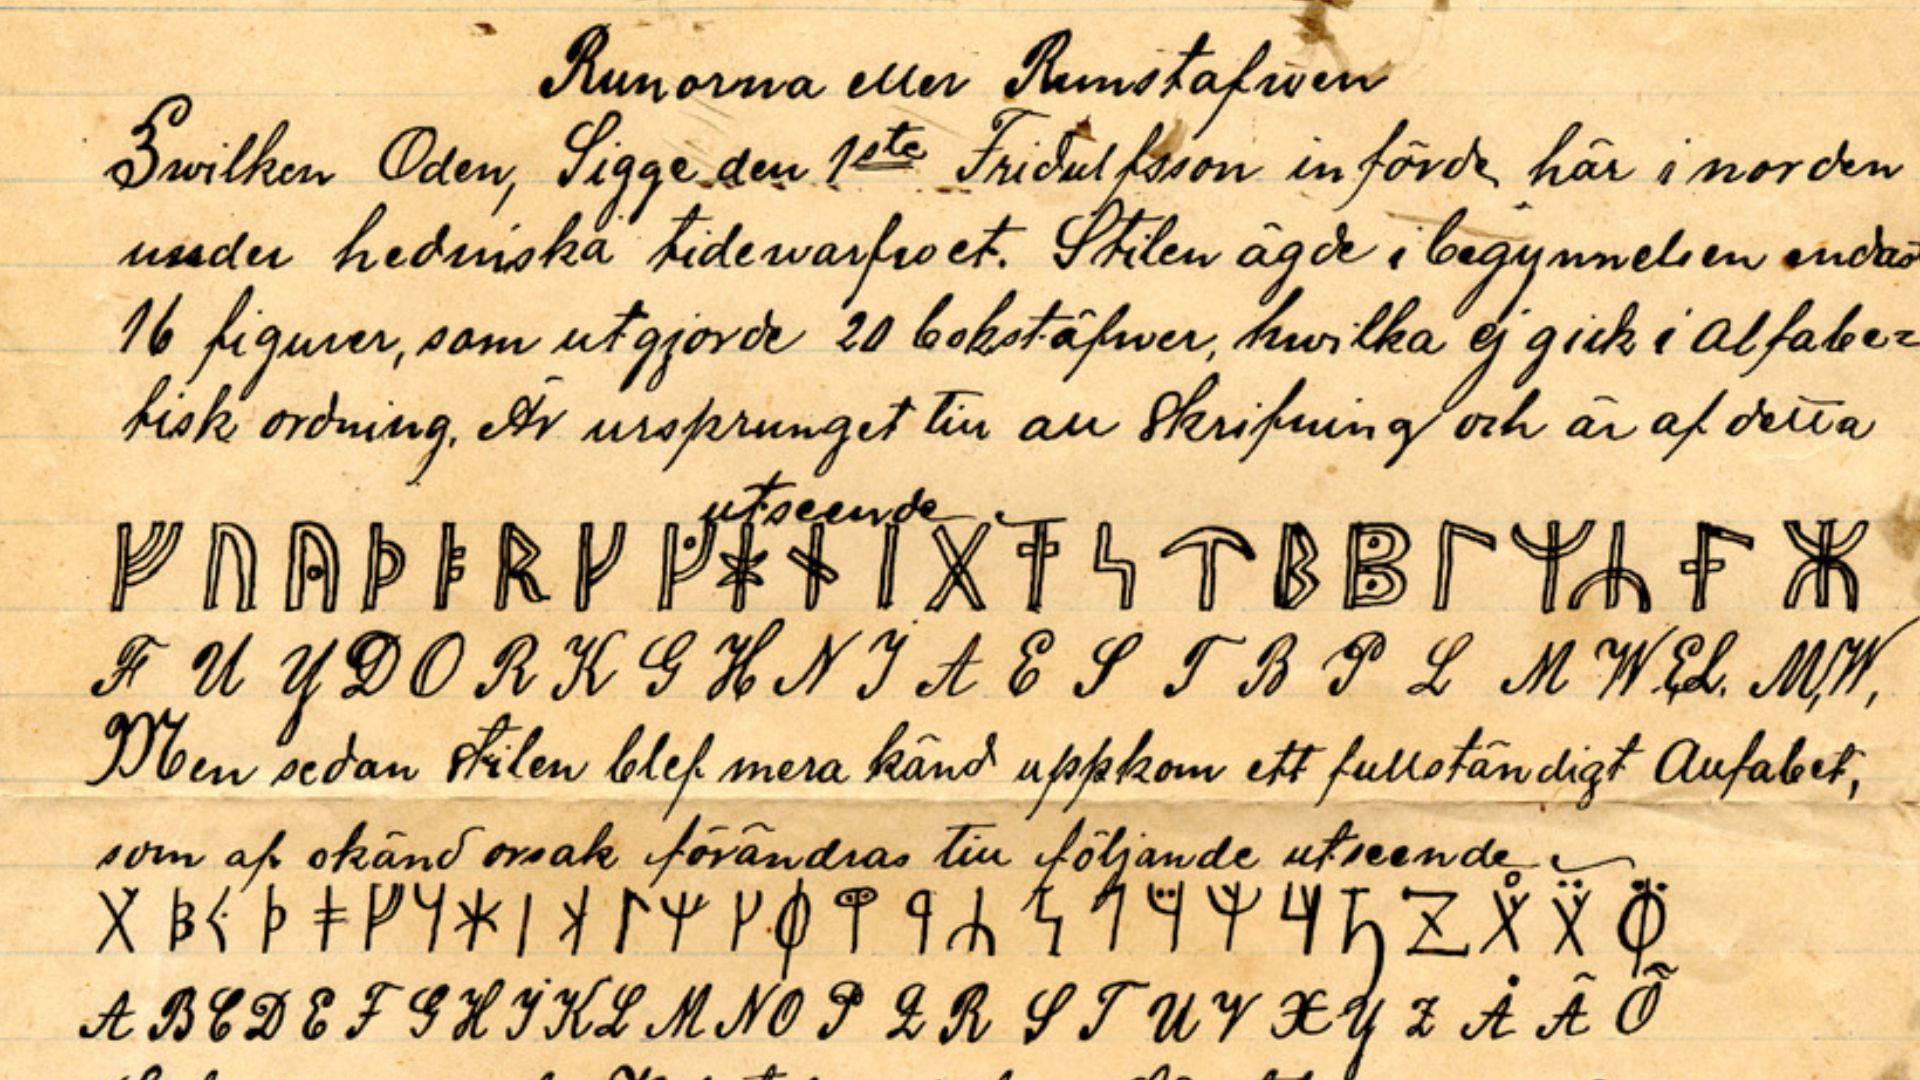 Runorna eller Runstafwen
Hwilken Oden, Sigge den 1ste Fridulfsson införde här i norden
under hedniska tidewarfwet. Stilen ägde i begynnelsen endast
16 figurer, som utgjorde 20 bokstäfwer, hwilka ej gick i alfabe=
tisk ordning. Är ursprunget till all skrifning och är af detta
utseende
ᚠ ᚢ ᚦ ᚱ ᚴ ᚵ ᚼ ᚾ ᛁ ᛋ ᛏ ᛒ ᛚ ᛘ
F U Y D O R K G H N I A E S T B P L M W E,L. M,W,
Men sedan stilen blef mera känd uppkom ett fullständigt Allfabet,
som af okänd orsak förändras till följande utseende
ᚦ ᚠ ᛁ ᛚ ᛘ
A B C D E F G H I K L M N O P Q R S T U V X Y Z Å Ä Ö